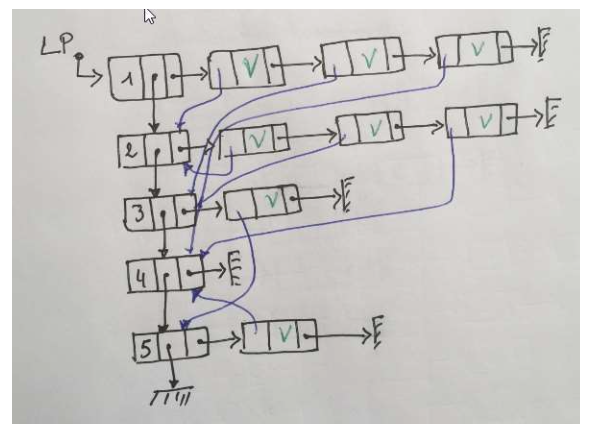 LP
1 V V V
2 V V V
3 V
4
5 V